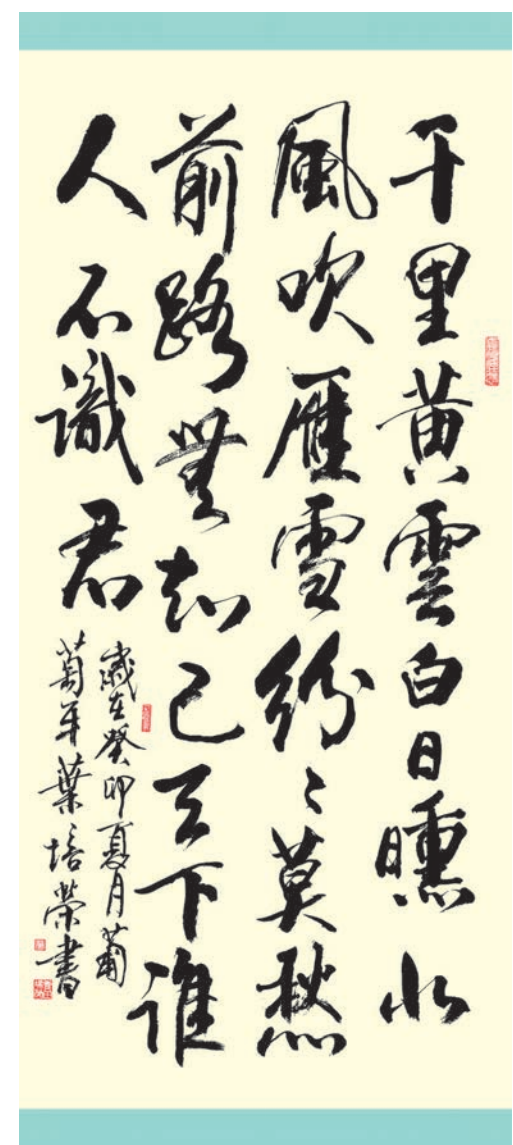 千里黄雲白日曛北
風吹雁雪紛〻莫愁
前路無知己天下誰
人不識君
歲在癸卯夏月葡
萄葉培榮書